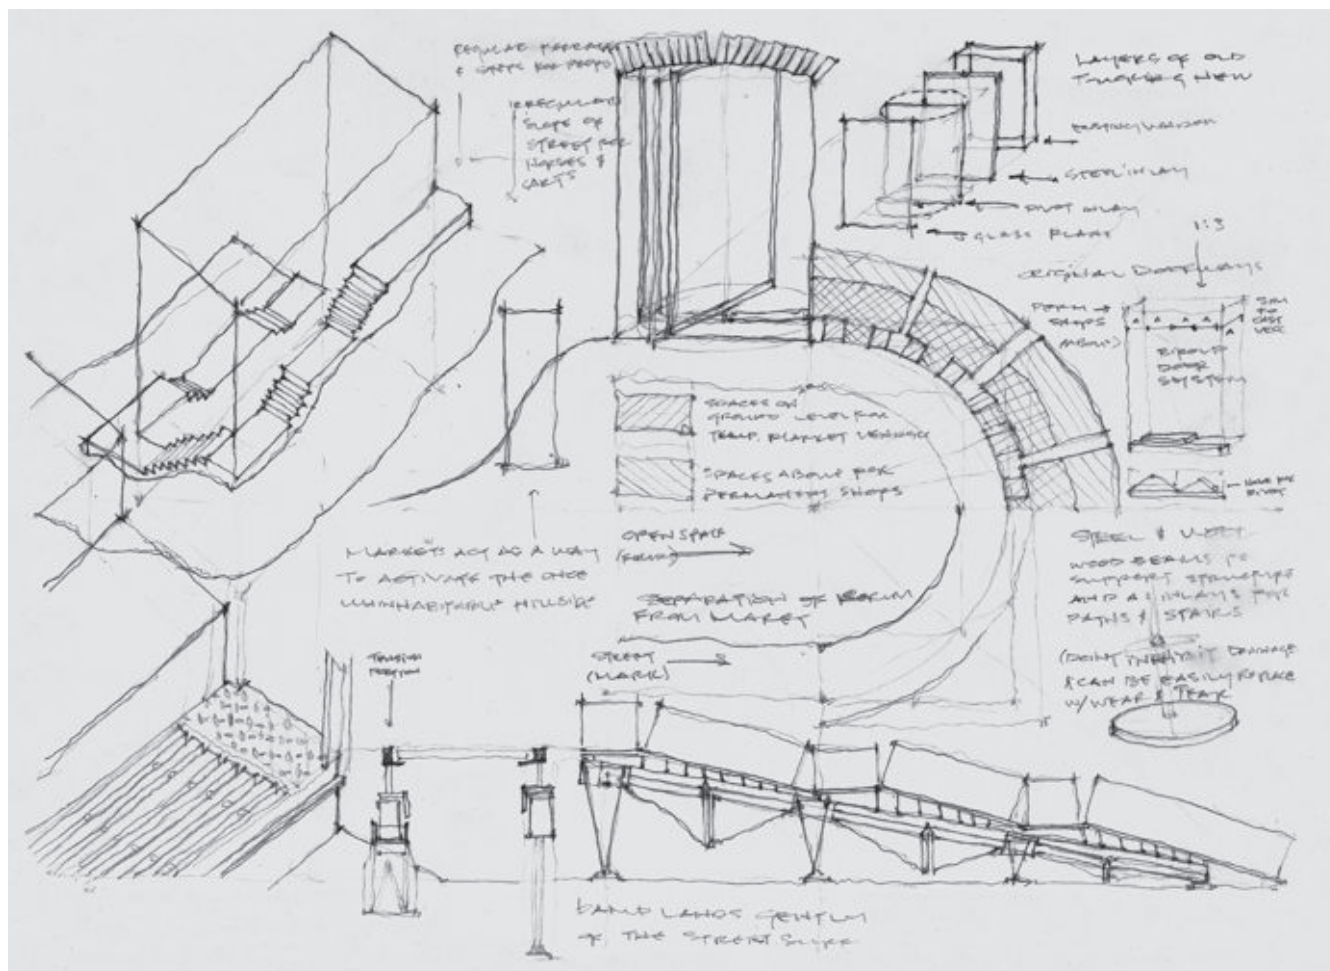 REGULAR TERRACES
& STEPS FOR PEOPLE
IRREGULAR
SLOPE OF
STREET FOR
HORSES &
CARTS
LAYERS OF OLD
TOUCHING NEW
EXISTING WINDOW
STEEL INLAY
PIVOT INLAY
GLASS PLANE
1:3
ORIGINAL DOORWAYS
FROM
SHOPS
ABOVE)
TO
BIFOLD
DOOR
SYSTEM
SPACES ON
GROUND LEVEL FOR
TEMP. MARKET VENDORS
SPACES ABOVE FOR
PERMANENT SHOPS
MARKETS ACT AS A WAY
TO ACTIVATE THE ONCE
UNINHABITABLE HILLSIDE
OPEN SPACE
(FORUM)
SEPARATION OF FORUM
FROM MARKET
STREET
(MARK)
STEEL &
WOOD BEAMS TO
SUPPORT STRUCTURE
AND AS INLAYS FOR
PATHS & STAIRS
(DOESNT INHIBIT DRAINAGE
& CAN BE EASILY REPLACE
W/ WEAR & TEAR
TENSION
BAND LANDS GENTLY
THE STREET